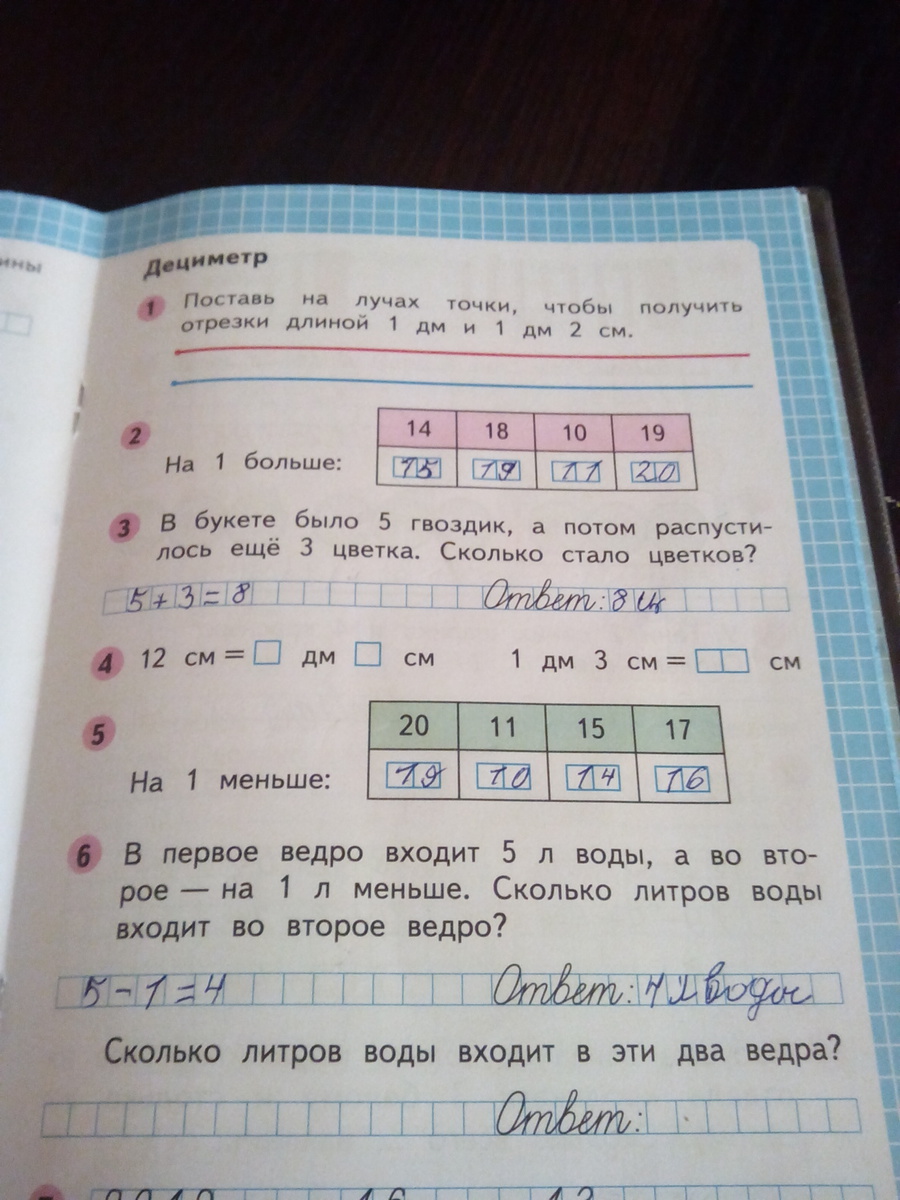 ины
Дециметр
1 Поставь на лучах точки, чтобы получить
отрезки длиной 1 дм и 1 дм 2 см.
2
14 18 10 19
На 1 больше: 15 19 11 20
3 В букете было 5 гвоздик, а потом распусти-
лось ещё 3 цветка. Сколько стало цветков?
5+3=8 Ответ: 8 ц
4 12 см = дм см 1 дм 3 см = см
5
20 11 15 17
На 1 меньше: 19 10 14 16
6 В первое ведро входит 5 л воды, а во вто-
рое — на 1 л меньше. Сколько литров воды
входит во второе ведро?
5-1=4 Ответ: 4 л воды
Сколько литров воды входит в эти два ведра?
Ответ: